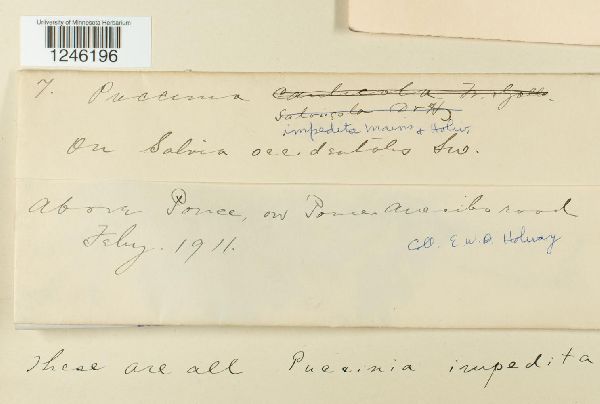 University of Minnesota Herbarium
1246196
7. Puccinia caulicola Tr. & Gall.
salvicola D & H
impedita Mains & Holw.
On Salvia occidentalis Sw.
Above Ponce, on Ponce Arecibo road
Feby. 1911.
Coll. E. W. D. Holway
These are all Puccinia impedita